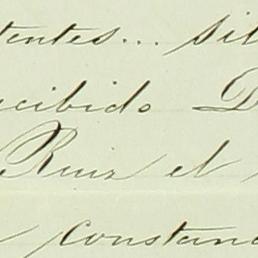 tentes... sil
ecibido D
Ruiz el
constanc